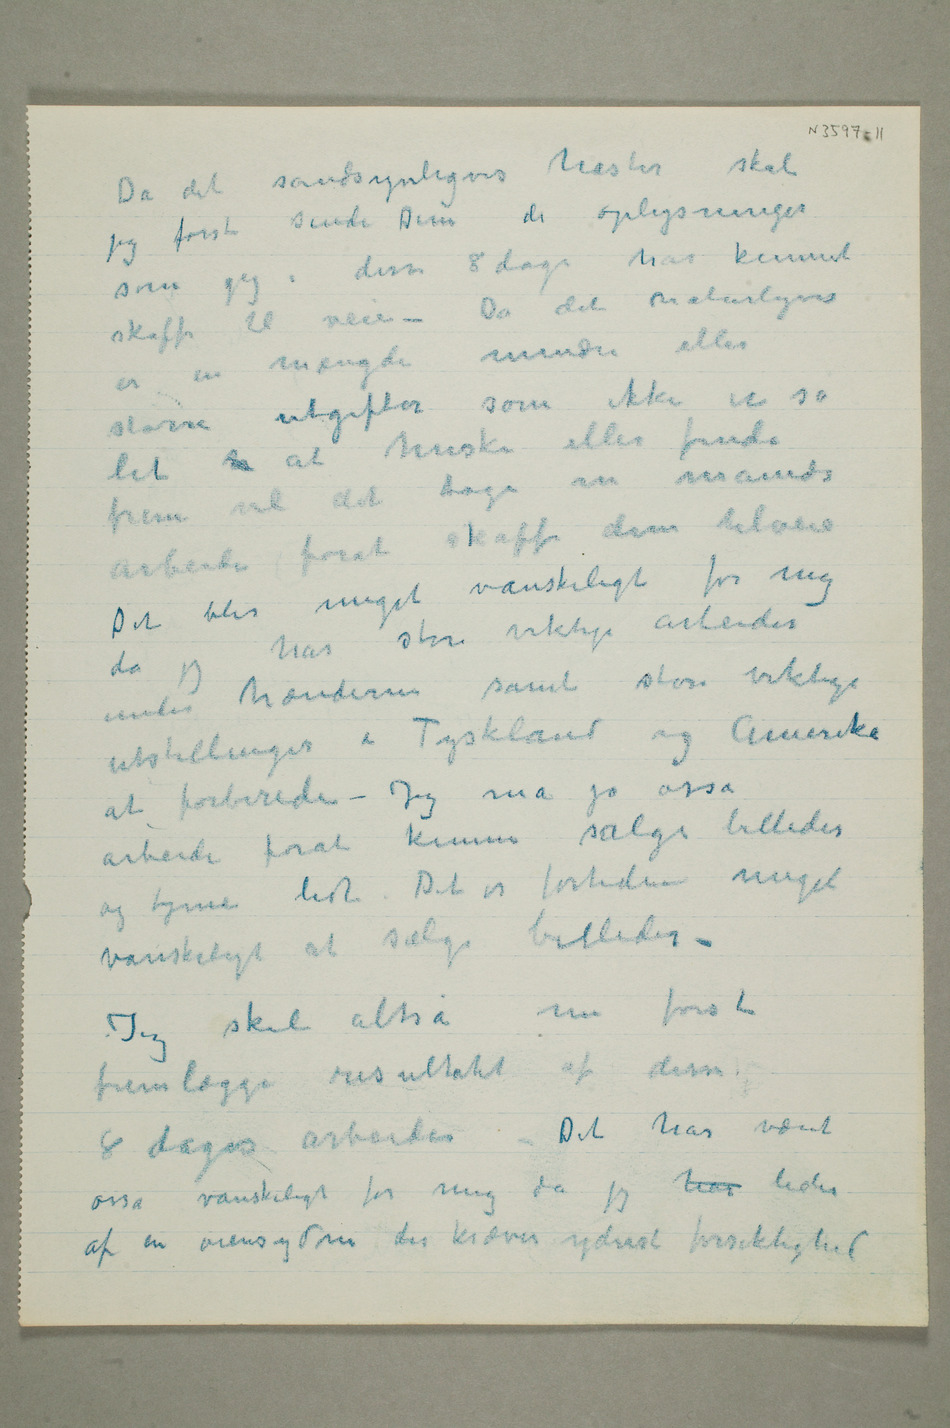 N 3597-11
Da det sandsynligvis haster skal
jeg først sende Dem de oplysninger
som jeg i disse 8 dage har kunnet
skaffe til veie – Da det naturligvis
er en mængde mindre eller
større utgifter som ikke er så
let at huske eller finde
frem vil det tage en mands
arbeide forat skaffe dem tilveie
Det blir meget vanskeligt for mig
da jeg har store viktige arbeider
under hænderne samt store viktige
utstillinger i Tyskland og Amerika
at forberede – Jeg må jo osså
arbeide forat kunne sælge billeder
og tjene lidt. Det er fortiden meget
vanskeligt at sælge billeder –
Jeg skal altså nu først
fremlægge resultatet af disse
8 dages arbeider – Det har været
osså vanskeligt for mig da jeg har lider
af en øiensygdom der kræver yderst forsiktighed